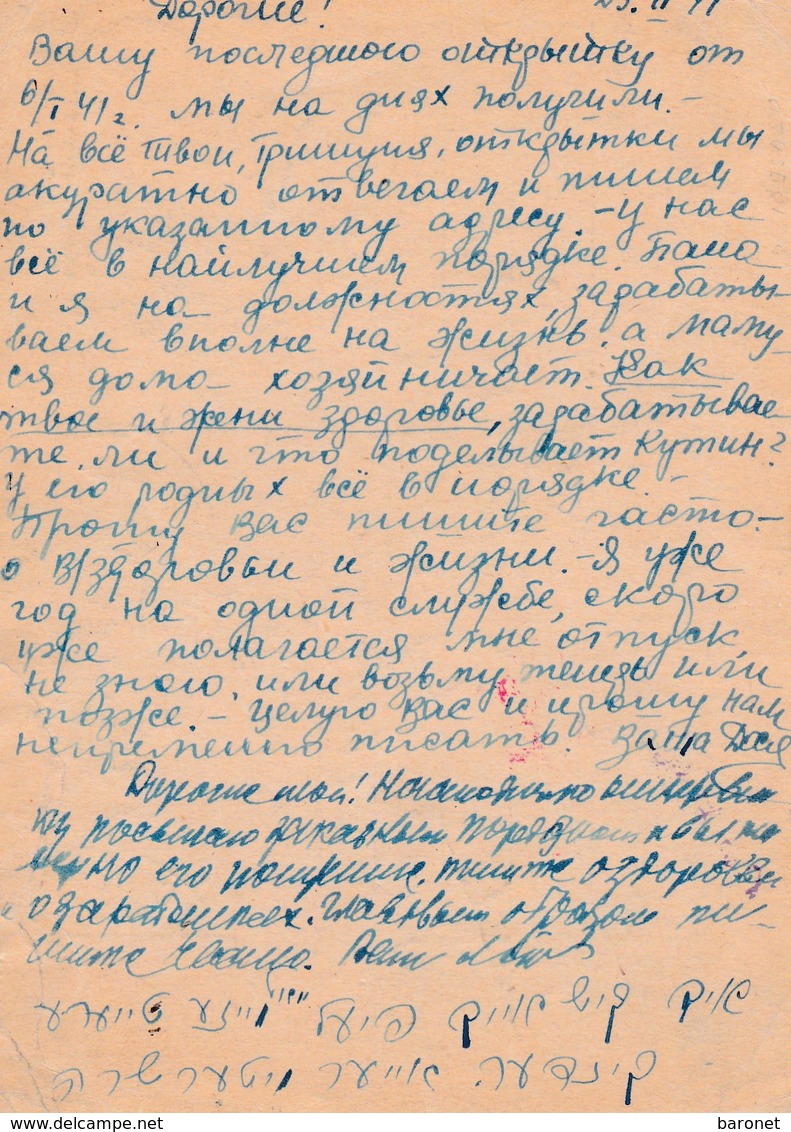 Дорогие! 23. II 41
Вашу последнюю открытку от
6/I 41 г. мы на днях получили. –
На всё твои, Гришуня, открытки мы
акуратно отвечаем и пишем
по указанному адресу. – У нас
всё в найлучшем порядке. Папа
и я на должностях, зарабаты-
ваем вполне на жизнь. а маму-
ся дома хозяйничает. Как
твое и жени здоровье, зарабатывае
те, ли и что поделывает Кутин?
У его родных всё в порядке. –
Прошу вас пишите часто –
о здоровьи и жизни. – Я уже
год на одной службе, скоро
уже полагается мне отпуск,
не знаю, или возьму теперь или
позже. – Целую вас и прошу нам
непременно писать. Ваша
Дорогие мои!
посылаю заказным порядком
но его пишите о здоровьи
о заработках. Главным образом пи-
шите чаще. Ваш
איך קיש אייך פיעל טייערע
קינדער. אייער
baronet